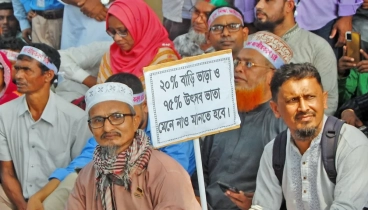 ২০% বাড়ী ভাড়া ও
৭৫% উৎসব ভাতা
মেনে নাও মানতে হবে।